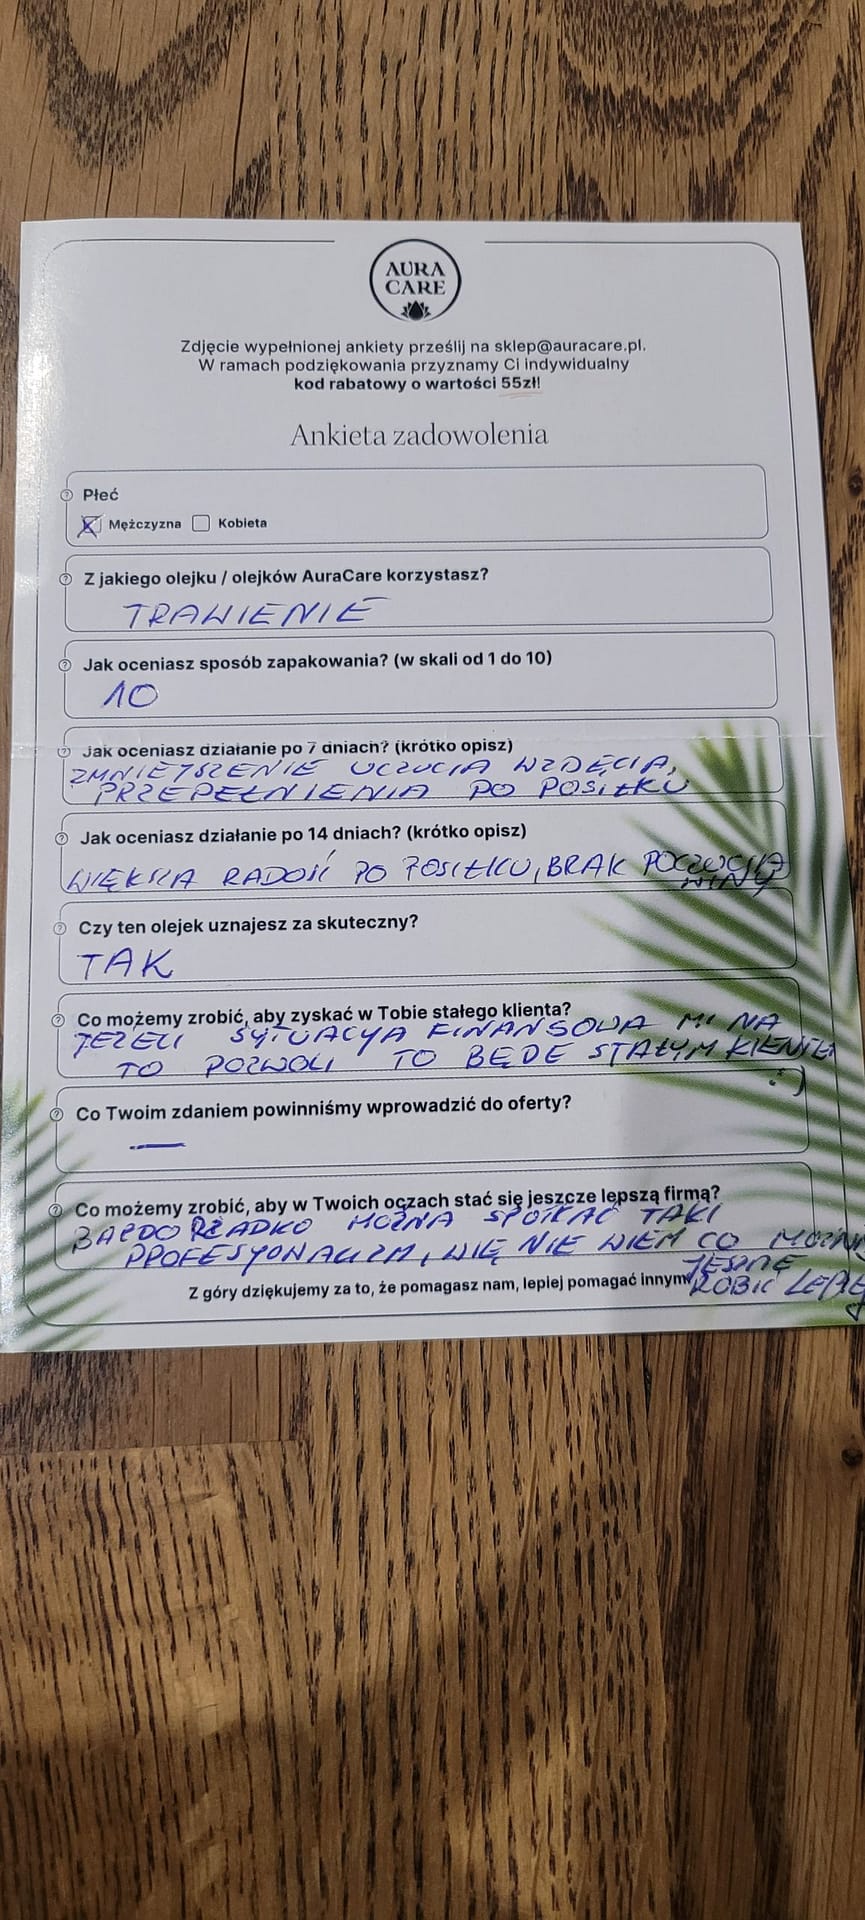 AURA
CARE
Zdjęcie wypełnionej ankiety prześlij na sklep@auracare.pl.
W ramach podziękowania przyznamy Ci indywidualny
kod rabatowy o wartości 55zł!
Ankieta zadowolenia
Płeć
Mężczyzna Kobieta
Z jakiego olejku / olejków AuraCare korzystasz?
TRAWIENIE
Jak oceniasz sposób zapakowania? (w skali od 1 do 10)
10
Jak oceniasz działanie po 7 dniach? (krótko opisz)
ZMNIEJSZENIE UCZUCIA WZDĘCIA,
PRZEPEŁNIENIA PO POSIŁKU
Jak oceniasz działanie po 14 dniach? (krótko opisz)
WIĘKSZA RADOŚĆ PO POSIŁKU, BRAK POCZUCIA
WINY
Czy ten olejek uznajesz za skuteczny?
TAK
Co możemy zrobić, aby zyskać w Tobie stałego klienta?
JEŻELI SYTUACJA FINANSOWA MI NA
TO POZWOLI TO BĘDE STAŁYM
:)
Co Twoim zdaniem powinniśmy wprowadzić do oferty?
—
Co możemy zrobić, aby w Twoich oczach stać się jeszcze lepszą firmą?
BARDO RZADKO MOŻNA SPOTKAĆ TAKI
PROFESYONALIZM, WIĘ NIE WIEM CO MOŻNA
JESZCZE
Z góry dziękujemy za to, że pomagasz nam, lepiej pomagać innym!
ROBIĆ LEPIEJ